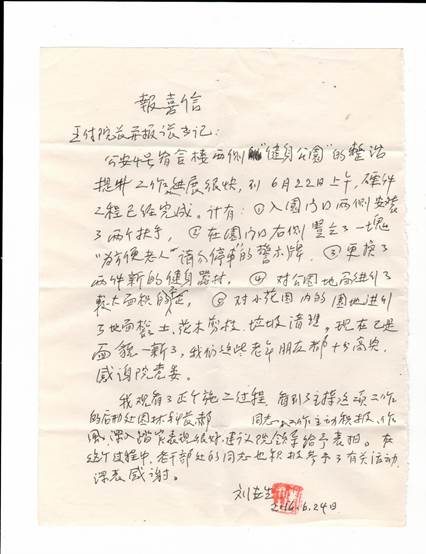 報喜信
王付院长并报张书记：
公安4号宿舍楼西侧"健身公園"的整治
提升工作进展很快，到6月22日上午，硬件
工程已经完成。计有：①入園门口两侧安装
了两个扶手，②在園门口右侧豎立了一塊
"为方便老人"请勿停車"的警示牌，③更換了
两件新的健身器材，④对公園地面进行了
較大面积的 ，⑤对小花園内的園地进行
了地面整土、花木剪枝、垃圾清理。现在已是
面貌一新了，我们这些老年朋友都十分高兴，
感谢院党委。
我观看了正个施工过程，看到了主持这项工作
的后勤处园林科 同志，工作主动积极，作
風深入踏实表现很好，建议院领导给予表扬。在
这个过程中，老干部处的同志也积极参予了有关活动，
深表感谢。
刘
2016.6.24日